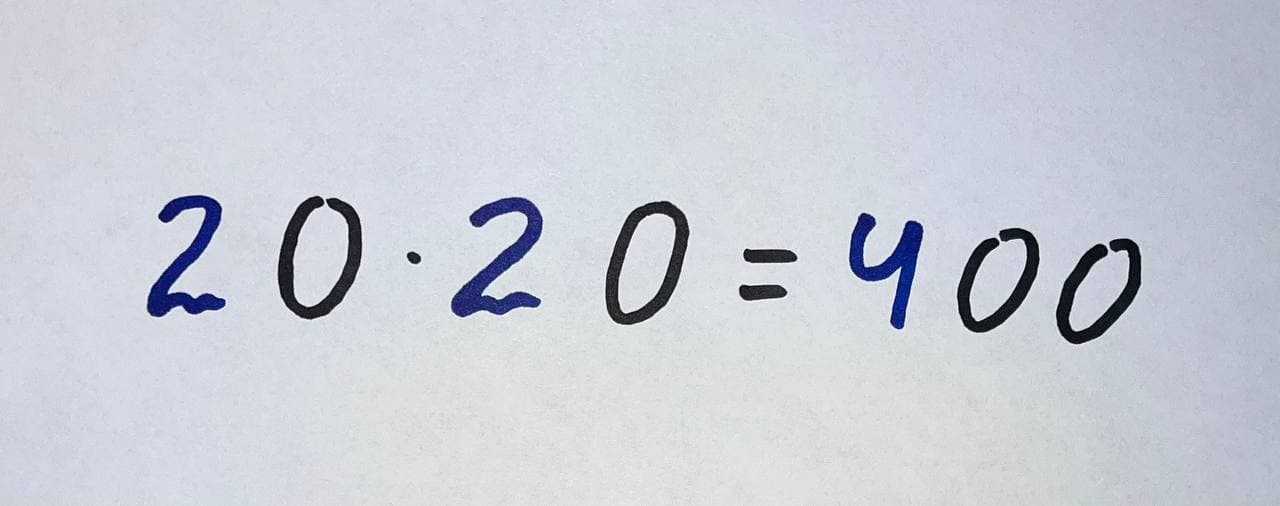 20·20=400